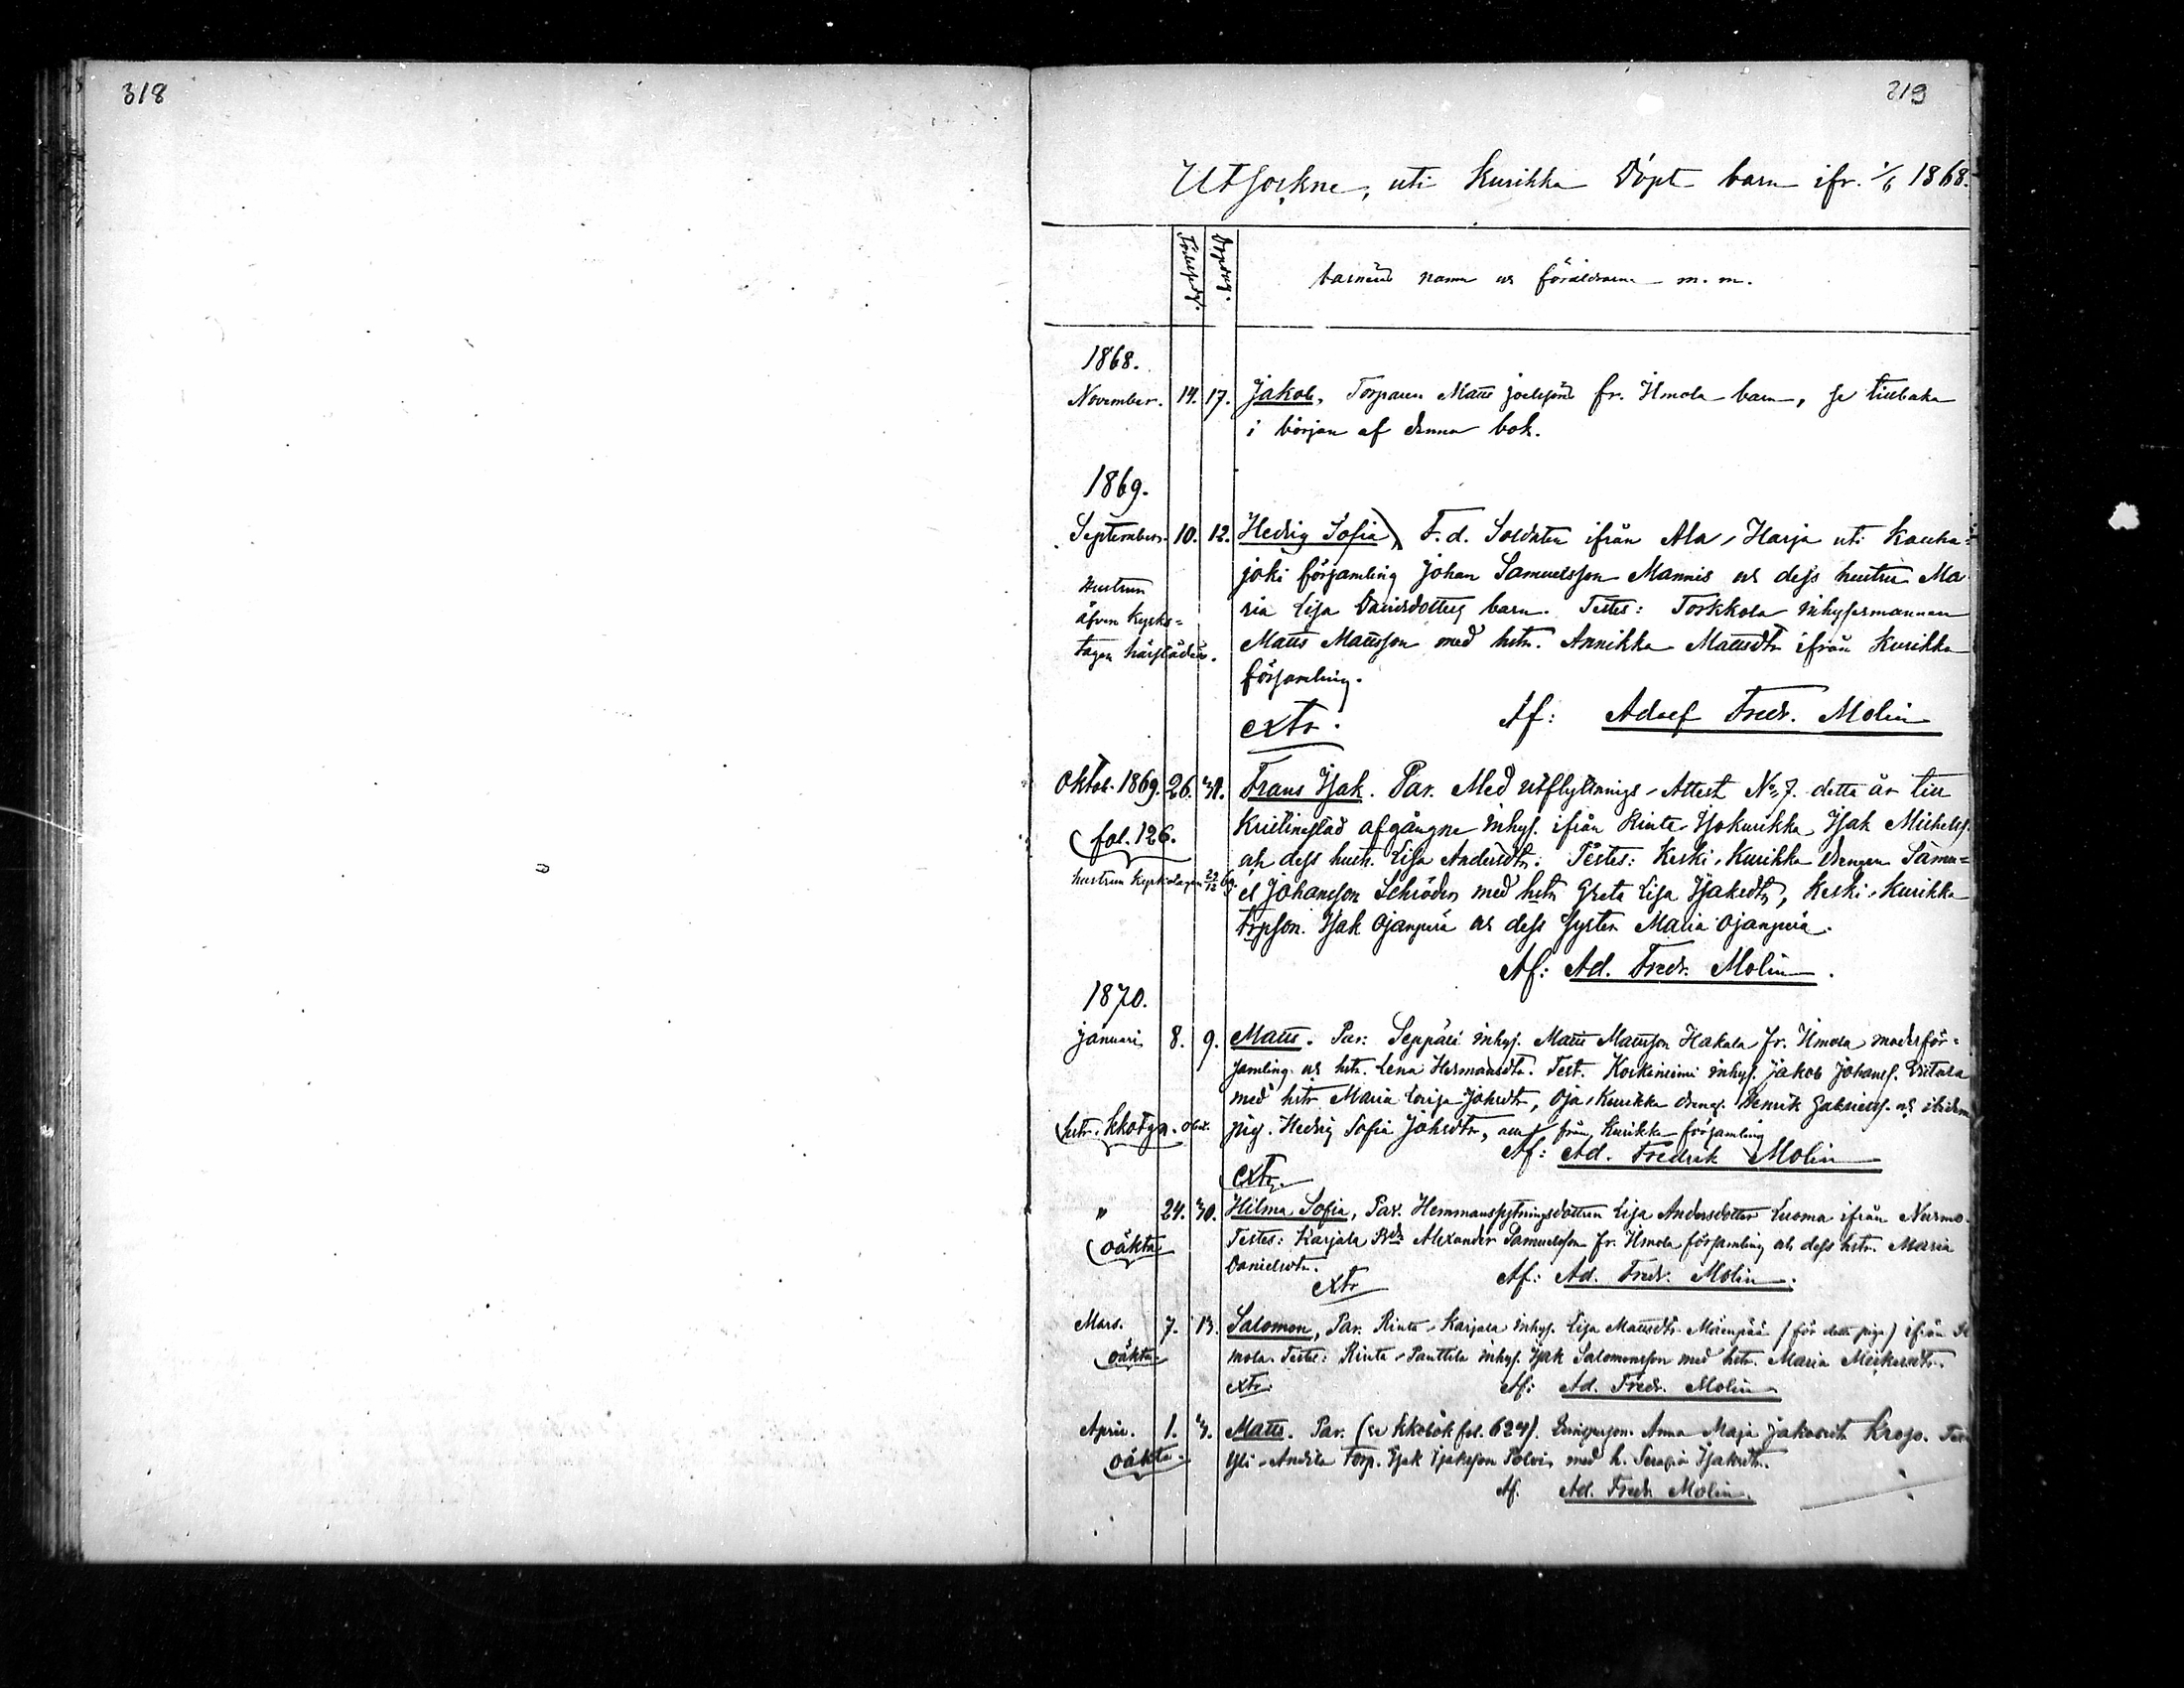 318
319
Utsockne, uti Kurikka Döpt barn ifr. 1/6 1868.
Födelsedag. Dopdag. barnens namn och föräldrarne m. m.
1868.
November. 14. 17. Jakob, Torparen Matts fr. Ilmola barn, se tillbaka
i början af denna bok.
1869.
September. 10. 12. Hedvig Sofia, F. d. Soldaten ifrån Ala-Harja uti Kauha=
joki församling Johan Samuelsson Mannis och dess hustru Ma
Hustrun
ria Lisa Danielsdotters barn. Testes: Torkkola inhysesmannen
äfven kyrko=
Matts Mattsson med hstr. Annikka Mattsdtr ifrån Kurikka
tagen härstädes.
församling.
extr. Af: Adolf Fredr. Molin
Oktob. 1869. 26. 31. Frans Isak. Par. Med utflyttnings-Attest No 7. detta år till
Kristinestad afgångne inhys. ifrån Rinta-Isokurikka Isak Michelss.
fol. 126.
och dess hustr. Lisa Andersdtr. Testes: Keski-Kurikka drengen Samu=
hustrun kyrkotagen 29/12 69.
el Johansson Schröder med hstr Greta Lisa Isaksdtr, Keski-Kurikka
trpson. Isak Ojanperä och dess syster Maria Ojanperä.
Af: Ad. Fredr. Molin.
1870.
Januari 8. 9. Matts. Par: Seppälä inhys. Matts Mattsson Hakala fr. Ilmola moderför=
samling och hstr. Lena Hermansdtr. Test. Koskiniemi inhys. Jakob Johanss.
med hstr Maria Lovisa Johsdtr, Oja-Kurikka dreng. Henrik Gabrielss. och ibidem
hstr. kkotgn. pig. Hedvig Sofia Johsdtr, från Kurikka församling
Af: Ad. Fredrik Molin
extr.
" 24. 30. Hilma Sofia, Par. Hemmansbytningsdottren Lisa Andersdotter Luoma ifrån Nurmo.
oäkta
Testes: Karjala Bd Alexander Samuelsson fr. Ilmola församling och dess hstr. Maria
Danielsdtr.
extr Af: Ad. Fredr. Molin.
Mars. 7. 13. Salomon, Par. Rinta-Karjala inhys. Lisa Mattsdtr Mäenpää (för detta piga) ifrån Il
oäkta
mola. Testes: Rinta-Panttila inhys. Isak Salomonsson med hstr. Maria Michelsdtr.
extr Af: Ad. Fredr. Molin
April. 1. 3. Matts. Par. (se kkobok fol. 624). Anna Maja Jakobsdtr Krojo. Tes
oäkta
Yli-Anttila Torp. Isak Isaksson Polvi med h. Serafia Isaksdtr.
Af. Ad. Fredr. Molin.